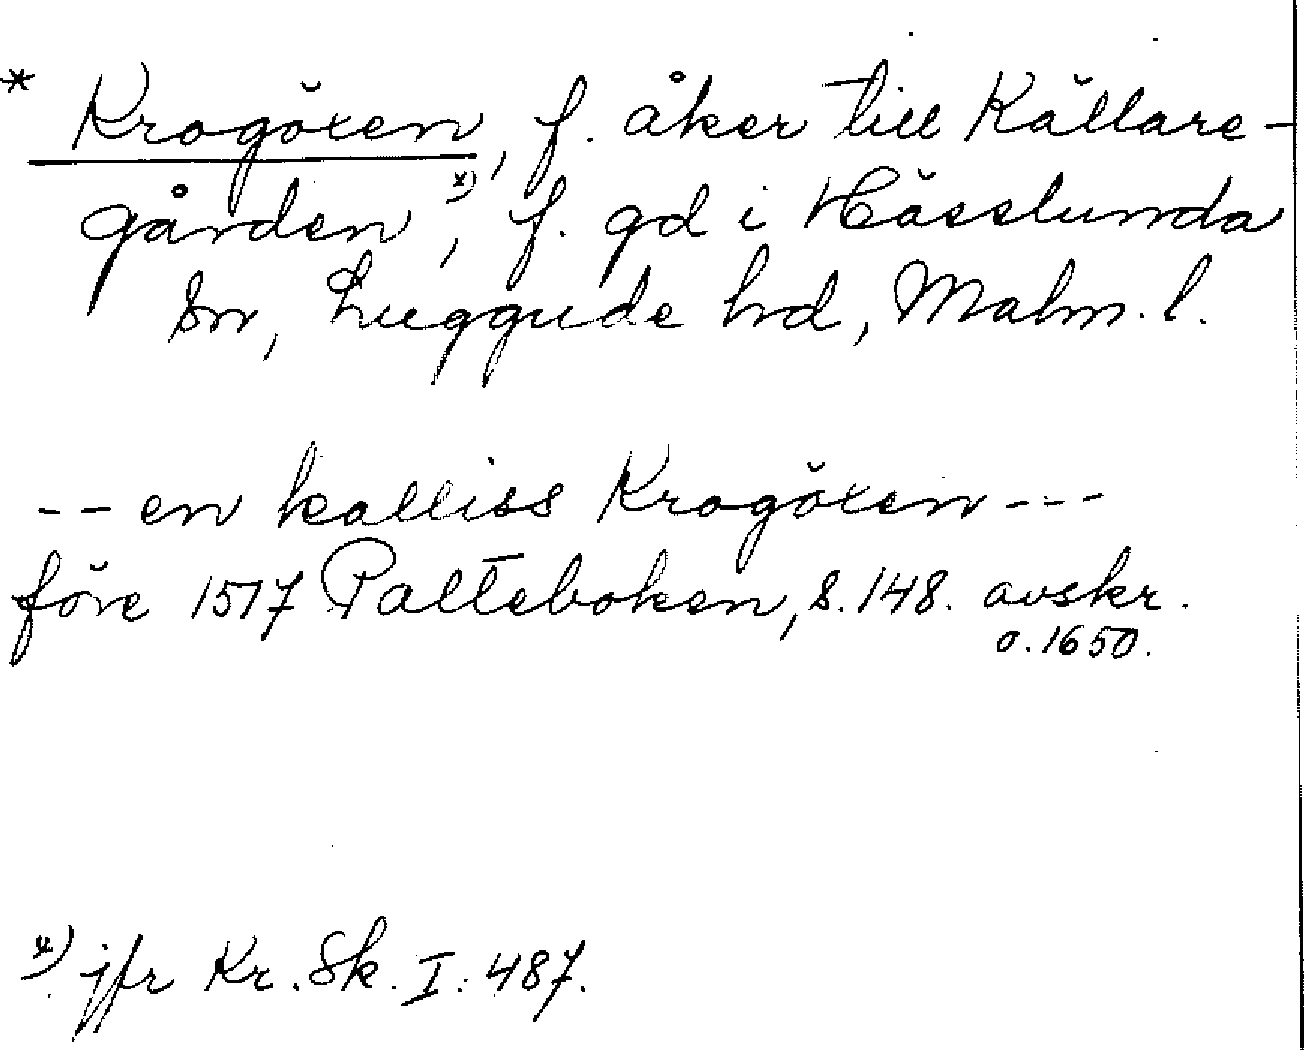 * Krogöxen, f. åker till Källare-
gården *), f. gd i Hässlunda
sn, Luggude hd, Malm. l.
-- en kalliss Krogöxen ---
före 1517 Palteboken, s. 148. avskr.
o. 1650.
*) jfr Kr. Sk. I: 487.